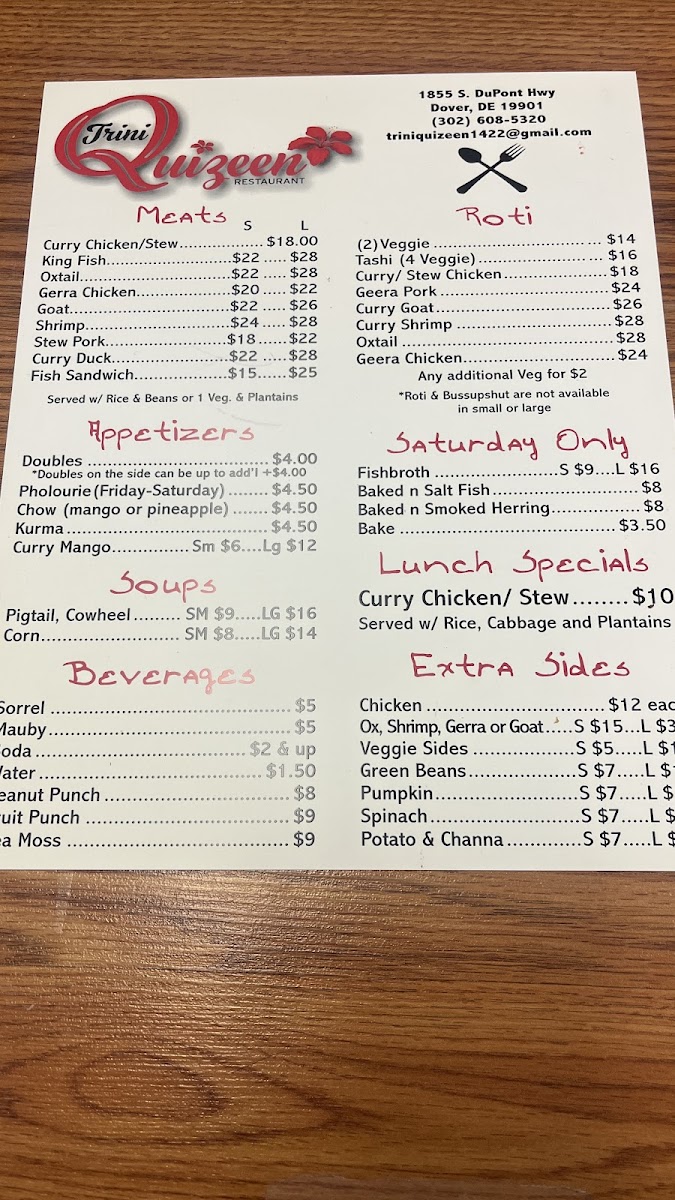 Trini
Quizeen
RESTAURANT
1855 S. DuPont Hwy
Dover, DE 19901
(302) 608-5320
triniquizeen1422@gmail.com
Meats
S L
Curry Chicken/Stew................ $18.00
King Fish........................$22 ..... $28
Oxtail.............................$22 ..... $28
Gerra Chicken..................$20 ..... $22
Goat...............................$22 ..... $26
Shrimp............................$24 ..... $28
Stew Pork.......................$18 ......$22
Curry Duck......................$22 .....$28
Fish Sandwich..................$15......$25
Served w/ Rice & Beans or 1 Veg. & Plantains
Appetizers
Doubles ................................. $4.00
*Doubles on the side can be up to add'l +$4.00
Pholourie (Friday-Saturday) ....... $4.50
Chow (mango or pineapple) ...... $4.50
Kurma ..................................... $4.50
Curry Mango.............. Sm $6....Lg $12
Soups
Pigtail, Cowheel......... SM $9.....LG $16
Corn......................... SM $8.....LG $14
Beverages
Sorrel ........................................ $5
Mauby........................................ $5
oda ................................ $2 & up
ater ..................................... $1.50
eanut Punch ............................... $8
uit Punch .................................. $9
a Moss ..................................... $9
Roti
(2)Veggie ................................. $14
Tashi (4 Veggie) ........................ $16
Curry/ Stew Chicken.................... $18
Geera Pork ................................ $24
Curry Goat................................. $26
Curry Shrimp ............................. $28
Oxtail ....................................... $28
Geera Chicken............................ $24
Any additional Veg for $2
*Roti & Bussupshut are not available
in small or large
Saturday Only
Fishbroth .....................S $9....L $16
Baked n Salt Fish............................ $8
Baked n Smoked Herring................. $8
Bake ....................................... $3.50
Lunch Specials
Curry Chicken/ Stew........ $10
Served w/ Rice, Cabbage and Plantains
Extra Sides
Chicken ................................ $12 eac
Ox, Shrimp, Gerra or Goat.....S $15...L $3
Veggie Sides ..................S $5.....L $1
Green Beans...................S $7.....L $
Pumpkin.........................S $7.....L $
Spinach..........................S $7.....L $
Potato & Channa.............S $7.....L $